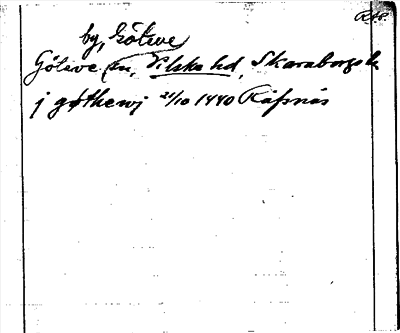 Rep.
by, Göteve
Göteve sn, Vilske hd, Skaraborgs l.
j gøthewj 21/10 1440 Räfsnäs